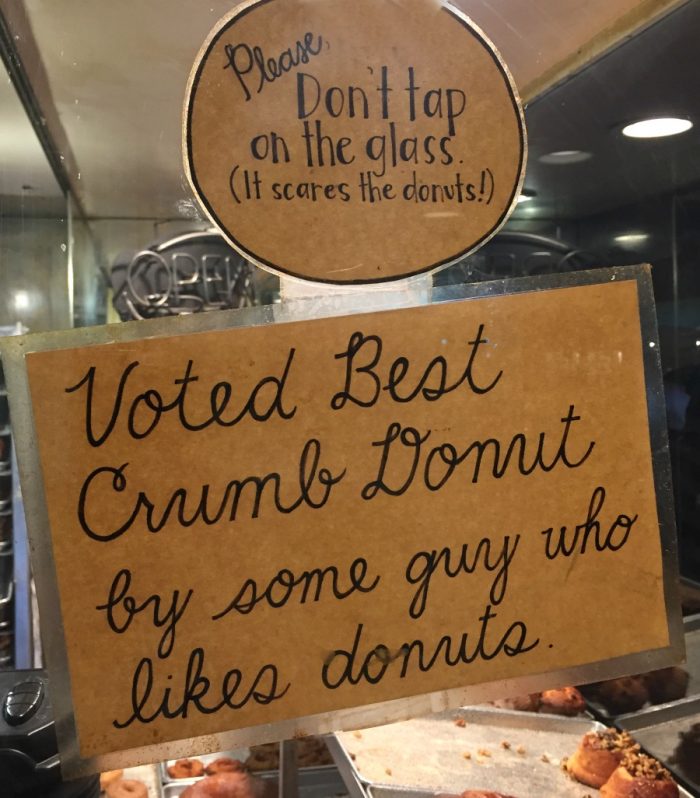 Please,
Don't tap
on the glass.
(It scares the donuts!)
OPEN
Voted Best
Crumb Donut
by some guy who
likes donuts.